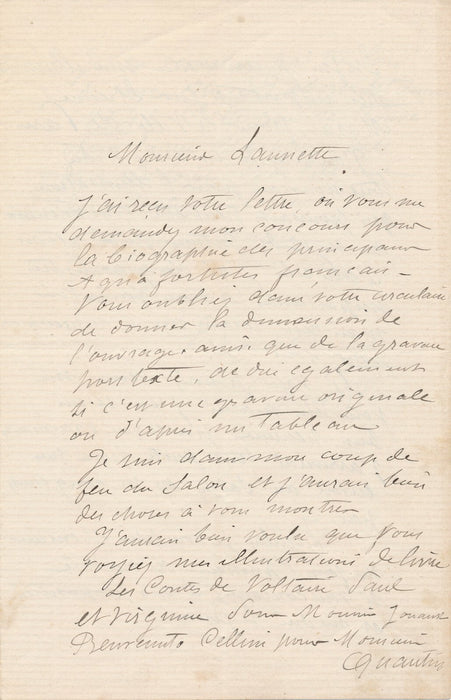 Monsieur Launette
J'ai reçu votre lettre, où vous me
demandez mon concours pour
la biographie des principaux
Aqua fortistes français –
Vous oubliez dans votre circulaire
de donner la dimension de
l'ouvrage. ainsi que de la gravure
hors texte, de dire également
si c'est une gravure originale
ou d'après un Tableau
Je suis dans mon coup de
feu du Salon et j'aurais bien
des choses à vous montrer
J'aurais bien voulu que vous
voyiez mes illustrations de livre
Les Contes de Voltaire Paul
et Virginie pour Monsieur Jouaust
Benvenuto Cellini pour Monsieur
Quantin